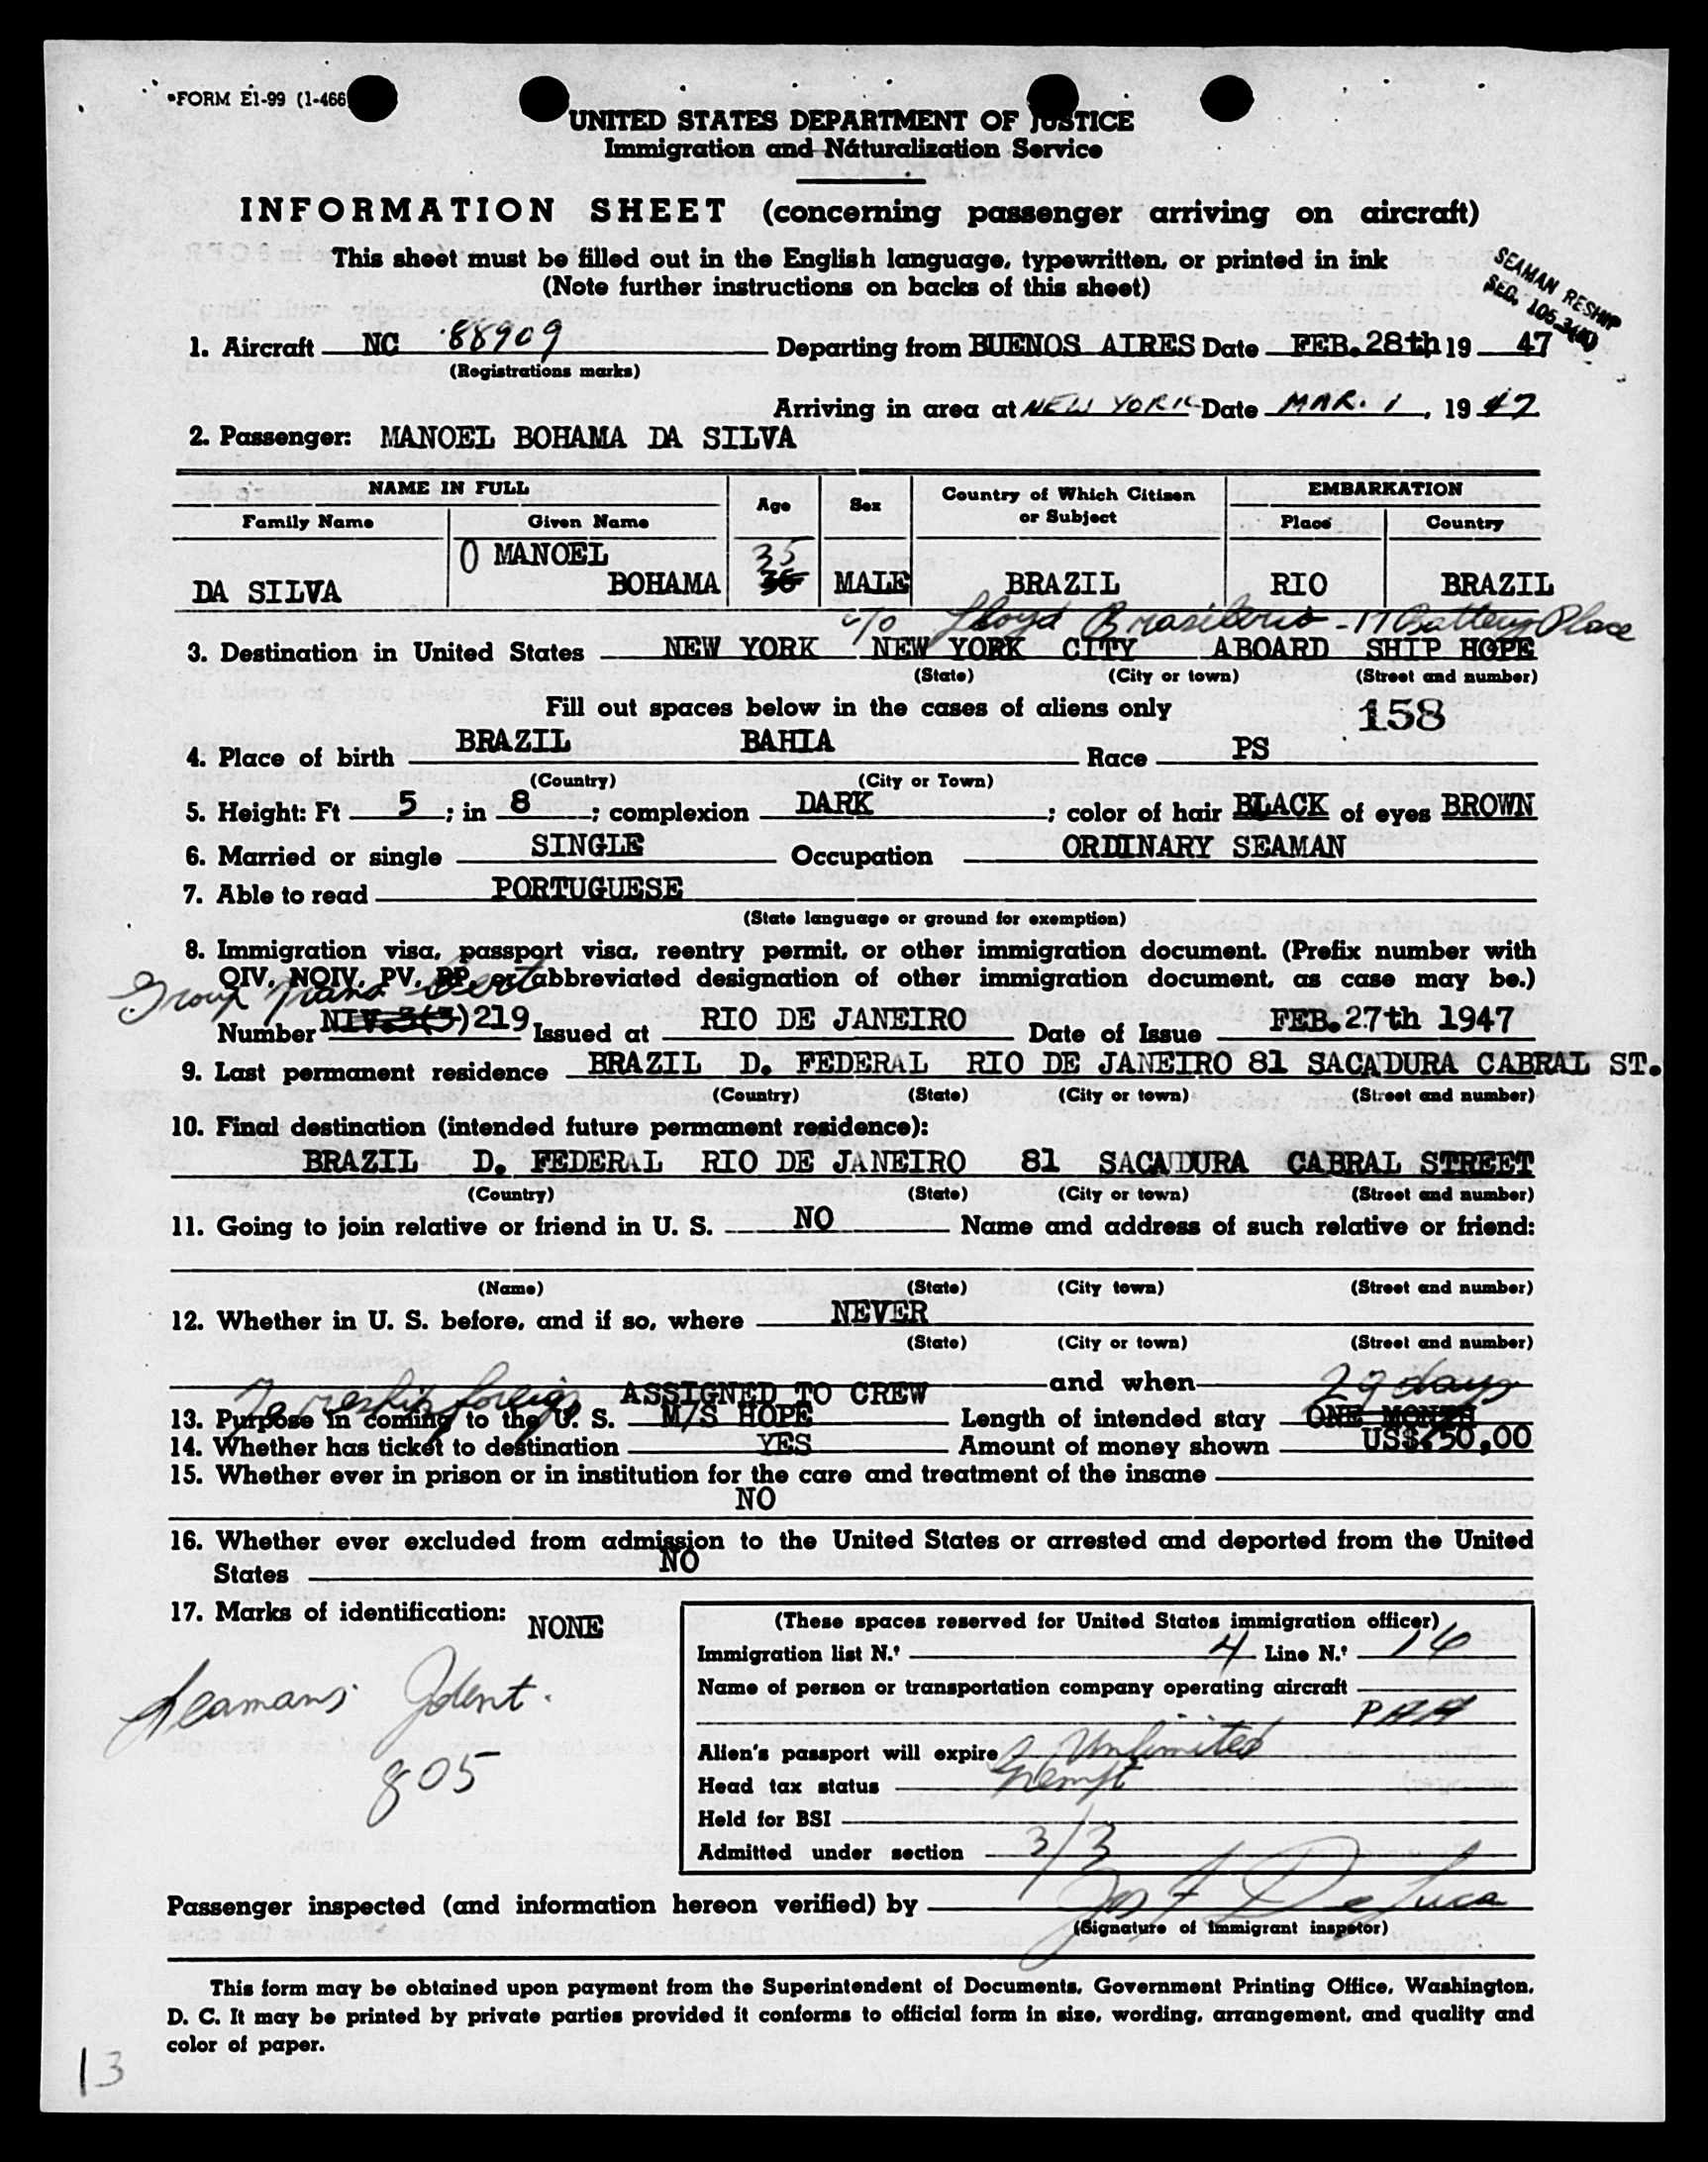 FORM E1-99 (1-466
UNITED STATES DEPARTMENT OF JUSTICE
Immigration and Naturalization Service
INFORMATION SHEET (concerning passenger arriving on aircraft)
This sheet must be filled out in the English language, typewritten, or printed in ink
(Note further instructions on backs of this sheet)
SEAMAN RESHIP
SEC. 105.3(4)
1. Aircraft NC 88909 Departing from BUENOS AIRES Date FEB. 28th 19 47
(Registrations marks)
Arriving in area at NEW YORK Date MAR. 1, 19 47
2. Passenger: MANOEL BOHAMA DA SILVA
NAME IN FULL Age Sex Country of Which Citizen or Subject EMBARKATION
Family Name Given Name Place Country
O MANOEL 35
DA SILVA BOHAMA 36 MALE BRAZIL RIO BRAZIL
c/o Lloyd Brasileiro - 17 Battery Place
3. Destination in United States NEW YORK NEW YORK CITY ABOARD SHIP HOPE
(State) (City or town) (Street and number)
Fill out spaces below in the cases of aliens only 158
4. Place of birth BRAZIL BAHIA Race PS
(Country) (City or Town)
5. Height: Ft 5; in 8; complexion DARK; color of hair BLACK of eyes BROWN
6. Married or single SINGLE Occupation ORDINARY SEAMAN
7. Able to read PORTUGUESE
(State language or ground for exemption)
8. Immigration visa, passport visa, reentry permit, or other immigration document. (Prefix number with
QIV, NQIV, PV, RP, or abbreviated designation of other immigration document, as case may be.)
Group Trans Cert
Number NIV.3(3) 219 Issued at RIO DE JANEIRO Date of Issue FEB. 27th 1947
9. Last permanent residence BRAZIL D. FEDERAL RIO DE JANEIRO 81 SACADURA CABRAL ST.
(Country) (State) (City or town) (Street and number)
10. Final destination (intended future permanent residence):
BRAZIL D. FEDERAL RIO DE JANEIRO 81 SACADURA CABRAL STREET
(Country) (State) (City or town) (Street and number)
11. Going to join relative or friend in U. S. NO Name and address of such relative or friend:
(Name) (State) (City town) (Street and number)
12. Whether in U. S. before, and if so, where NEVER
(State) (City or town) (Street and number)
To reship foreign ASSIGNED TO CREW and when 29 days
13. Purpose in coming to the U. S. M/S HOPE Length of intended stay ONE MONTH
14. Whether has ticket to destination YES Amount of money shown US$.50,00
15. Whether ever in prison or in institution for the care and treatment of the insane
NO
16. Whether ever excluded from admission to the United States or arrested and deported from the United
States NO
17. Marks of identification: NONE
Seamans Ident.
805
(These spaces reserved for United States immigration officer)
Immigration list N.º 4 Line N.º 16
Name of person or transportation company operating aircraft
PAA
Alien's passport will expire Unlimited
Head tax status Exempt
Held for BSI
Admitted under section 3/3
Passenger inspected (and information hereon verified) by Jos F De Luca
(Signature of immigrant inspetor)
This form may be obtained upon payment from the Superintendent of Documents, Government Printing Office, Washington,
D. C. It may be printed by private parties provided it conforms to official form in size, wording, arrangement, and quality and
color of paper.
13